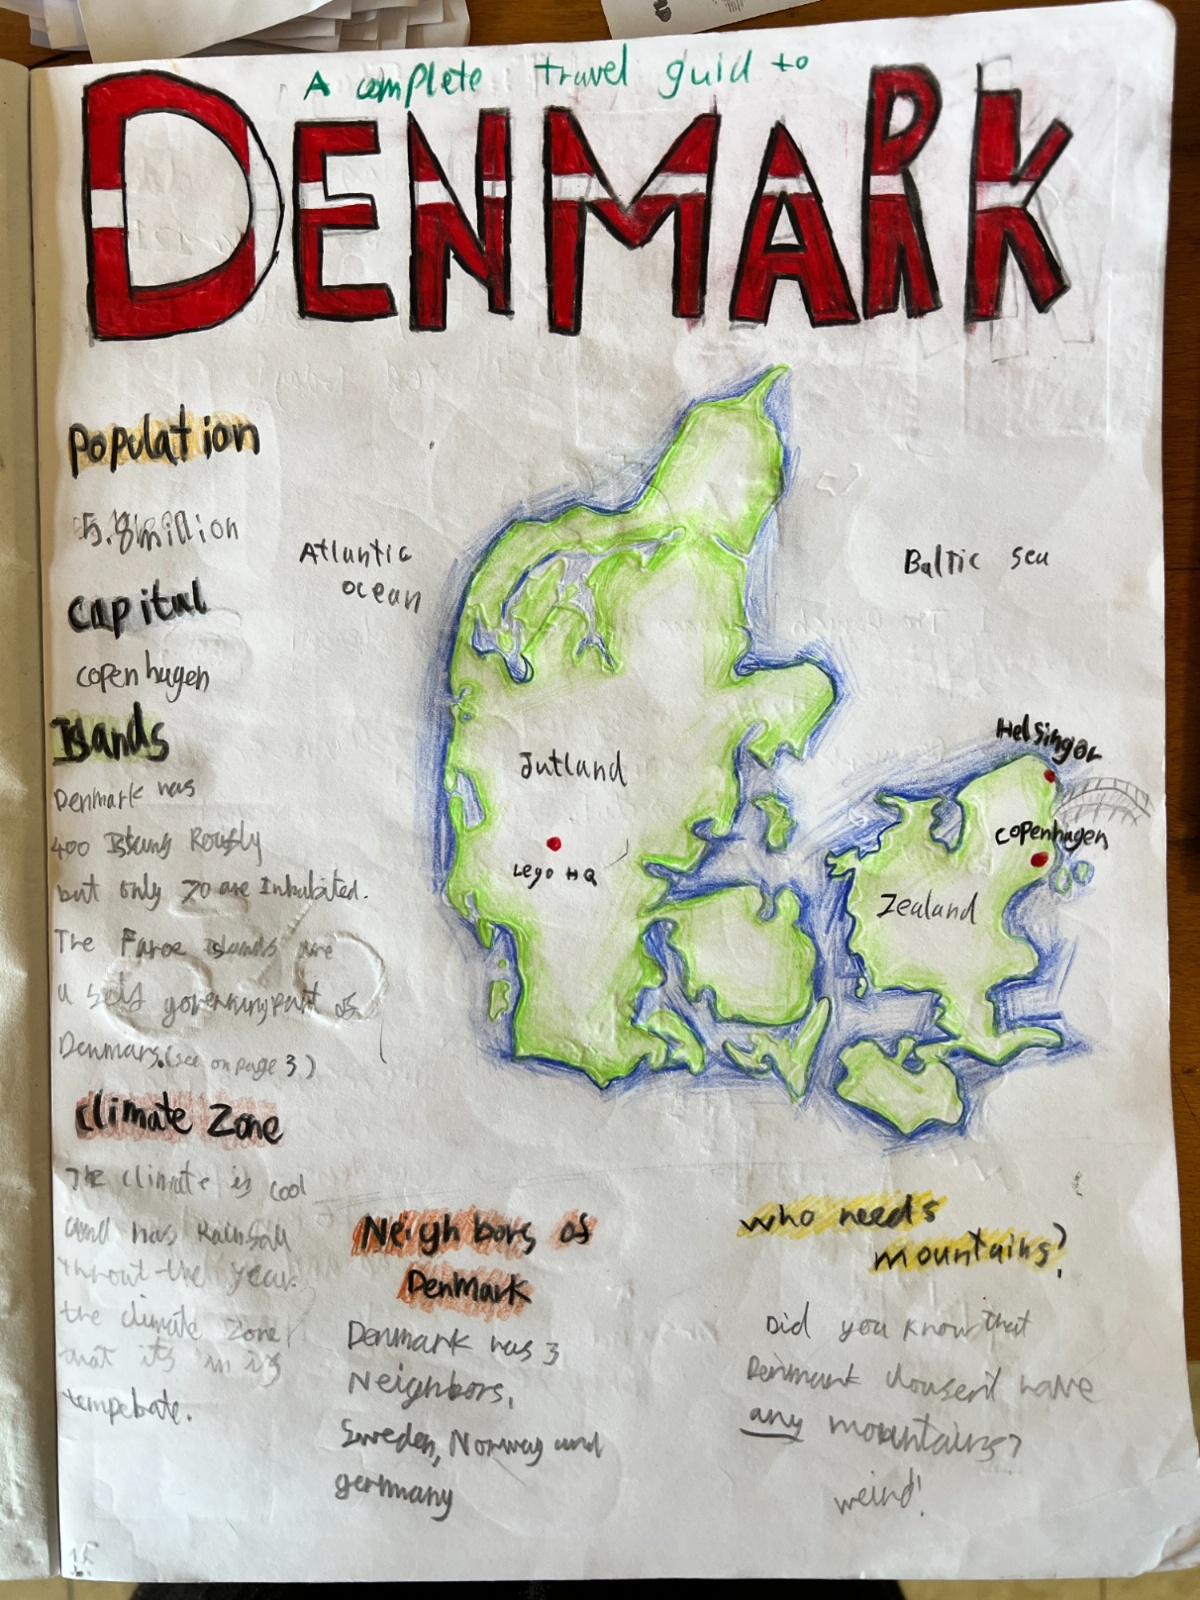 A complete travel guid to
DENMARK
Population
5.8 million
capital
copenhagen
Islands
Denmark has
400 Rougly
but only 70 are Inhabited.
The Faroe Islands are
a self governing part of
(see on page 3)
Climate Zone
The climate is cool
and has Rainfall
throut the year.
the climate zone
that its in is
Atlantic
ocean
Baltic sea
Jutland
Lego HQ
Helsingor
copenhagen
Zealand
Neighbors of
Denmark
Denmark has 3
Neighbors,
Sweden, Norway and
germany
who needs
mountains?
Did you know that
Denmark dousent have
any mountains?
weird!